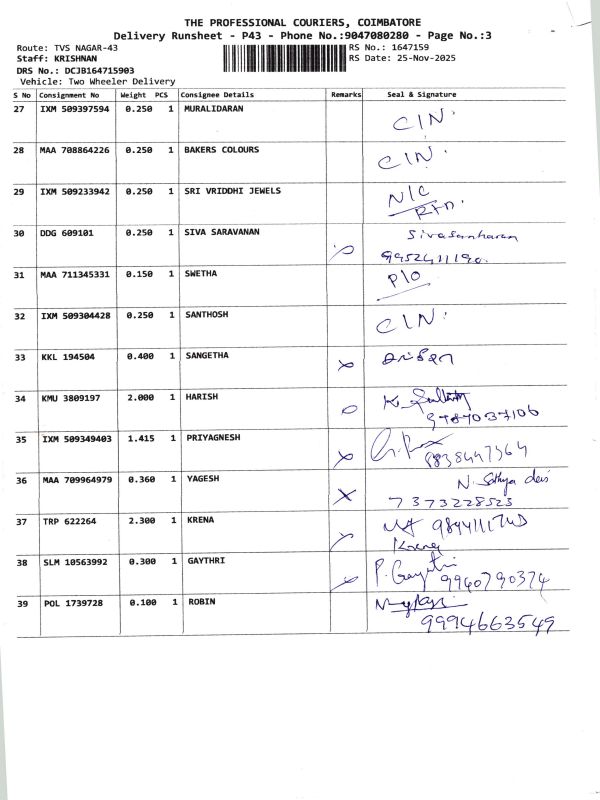 THE PROFESSIONAL COURIERS, COIMBATORE
Delivery Runsheet - P43 - Phone No.:9047080280 - Page No.:3
Route: TVS NAGAR-43
RS No.: 1647159
Staff: KRISHNAN
RS Date: 25-Nov-2025
DRS No.: DCJB164715903
Vehicle: Two Wheeler Delivery
S No Consignment No Weight PCS Consignee Details Remarks Seal & Signature
27 IXM 509397594 0.250 1 MURALIDARAN C/N.
28 MAA 708864226 0.250 1 BAKERS COLOURS C/N.
29 IXM 509233942 0.250 1 SRI VRIDDHI JEWELS N/C
30 DDG 609101 0.250 1 SIVA SARAVANAN
31 MAA 711345331 0.150 1 SWETHA P/O
32 IXM 509304428 0.250 1 SANTHOSH C/N.
33 KKL 194504 0.400 1 SANGETHA
34 KMU 3809197 2.000 1 HARISH
35 IXM 509349403 1.415 1 PRIYAGNESH
36 MAA 709964979 0.360 1 YAGESH N. Sathya devi
7373228523
37 TRP 622264 2.300 1 KRENA
Krena
38 SLM 10563992 0.300 1 GAYTHRI P. Gayatri
9940790374
39 POL 1739728 0.100 1 ROBIN
9994663549